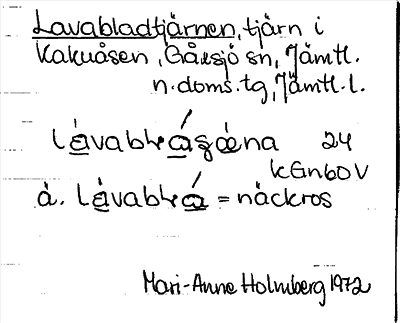 Lavabladtjärnen, tjärn i
Kakuåsen, Gåxsjö sn, Jämtl.
n. doms. tg, Jämtl. l.
24
KGnboV
= näckros
Mari-Anne Holmberg 1972